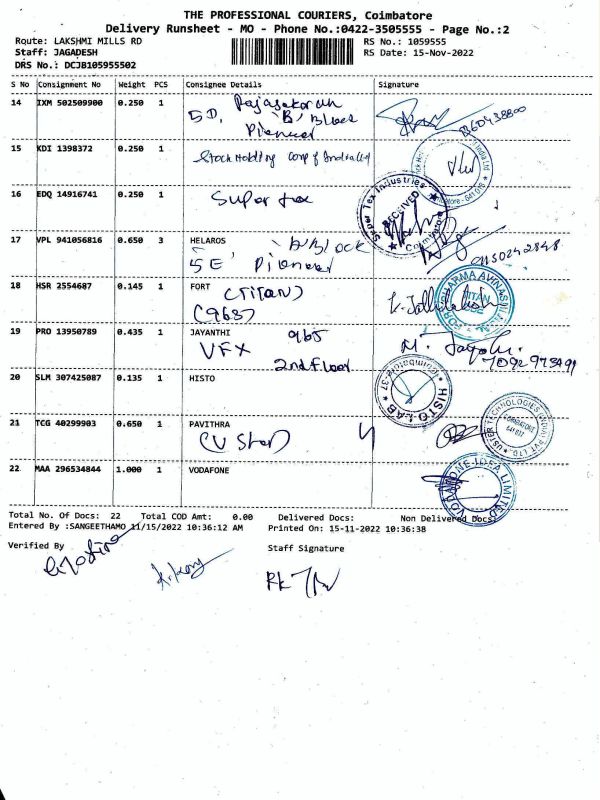 THE PROFESSIONAL COURIERS, Coimbatore
Delivery Runsheet - MO - Phone No.:0422-3505555 - Page No.:2
Route: LAKSHMI MILLS RD
RS No.: 1059555
Staff: JAGADESH
RS Date: 15-Nov-2022
DRS No.: DCJB105955502
S No Consignment No Weight PCS Consignee Details Signature
14 IXM 502509900 0.250 1 Rajasekaran
5D, 'B' Block
Pioneer
15 KDI 1398372 0.250 1 Stock Holding Corp of India Ltd
16 EDQ 14916741 0.250 1 Super tex
Super Tex Industries
RECEIVED
Coimbatore
17 VPL 941056816 0.650 3 HELAROS 'A' Block
5E' Pioneer
18 HSR 2554687 0.145 1 FORT
(Titan)
(968)
TITAN
19 PRO 13950789 0.435 1 JAYANTHI 965
VFX
2nd floor
7092973491
20 SLM 307425087 0.135 1 HISTO
HISTO LAB
Coimbatore-37
21 TCG 40299903 0.650 1 PAVITHRA
TECHNOLOGIES INDIA PVT. LTD.
COIMBATORE
22 MAA 296534844 1.000 1 VODAFONE
VODAFONE-IDEA LIMITED
Total No. Of Docs: 22 Total COD Amt: 0.00 Delivered Docs: Non Delivered Docs:
Entered By :SANGEETHAMO 11/15/2022 10:36:12 AM Printed On: 15-11-2022 10:36:38
Verified By
Staff Signature